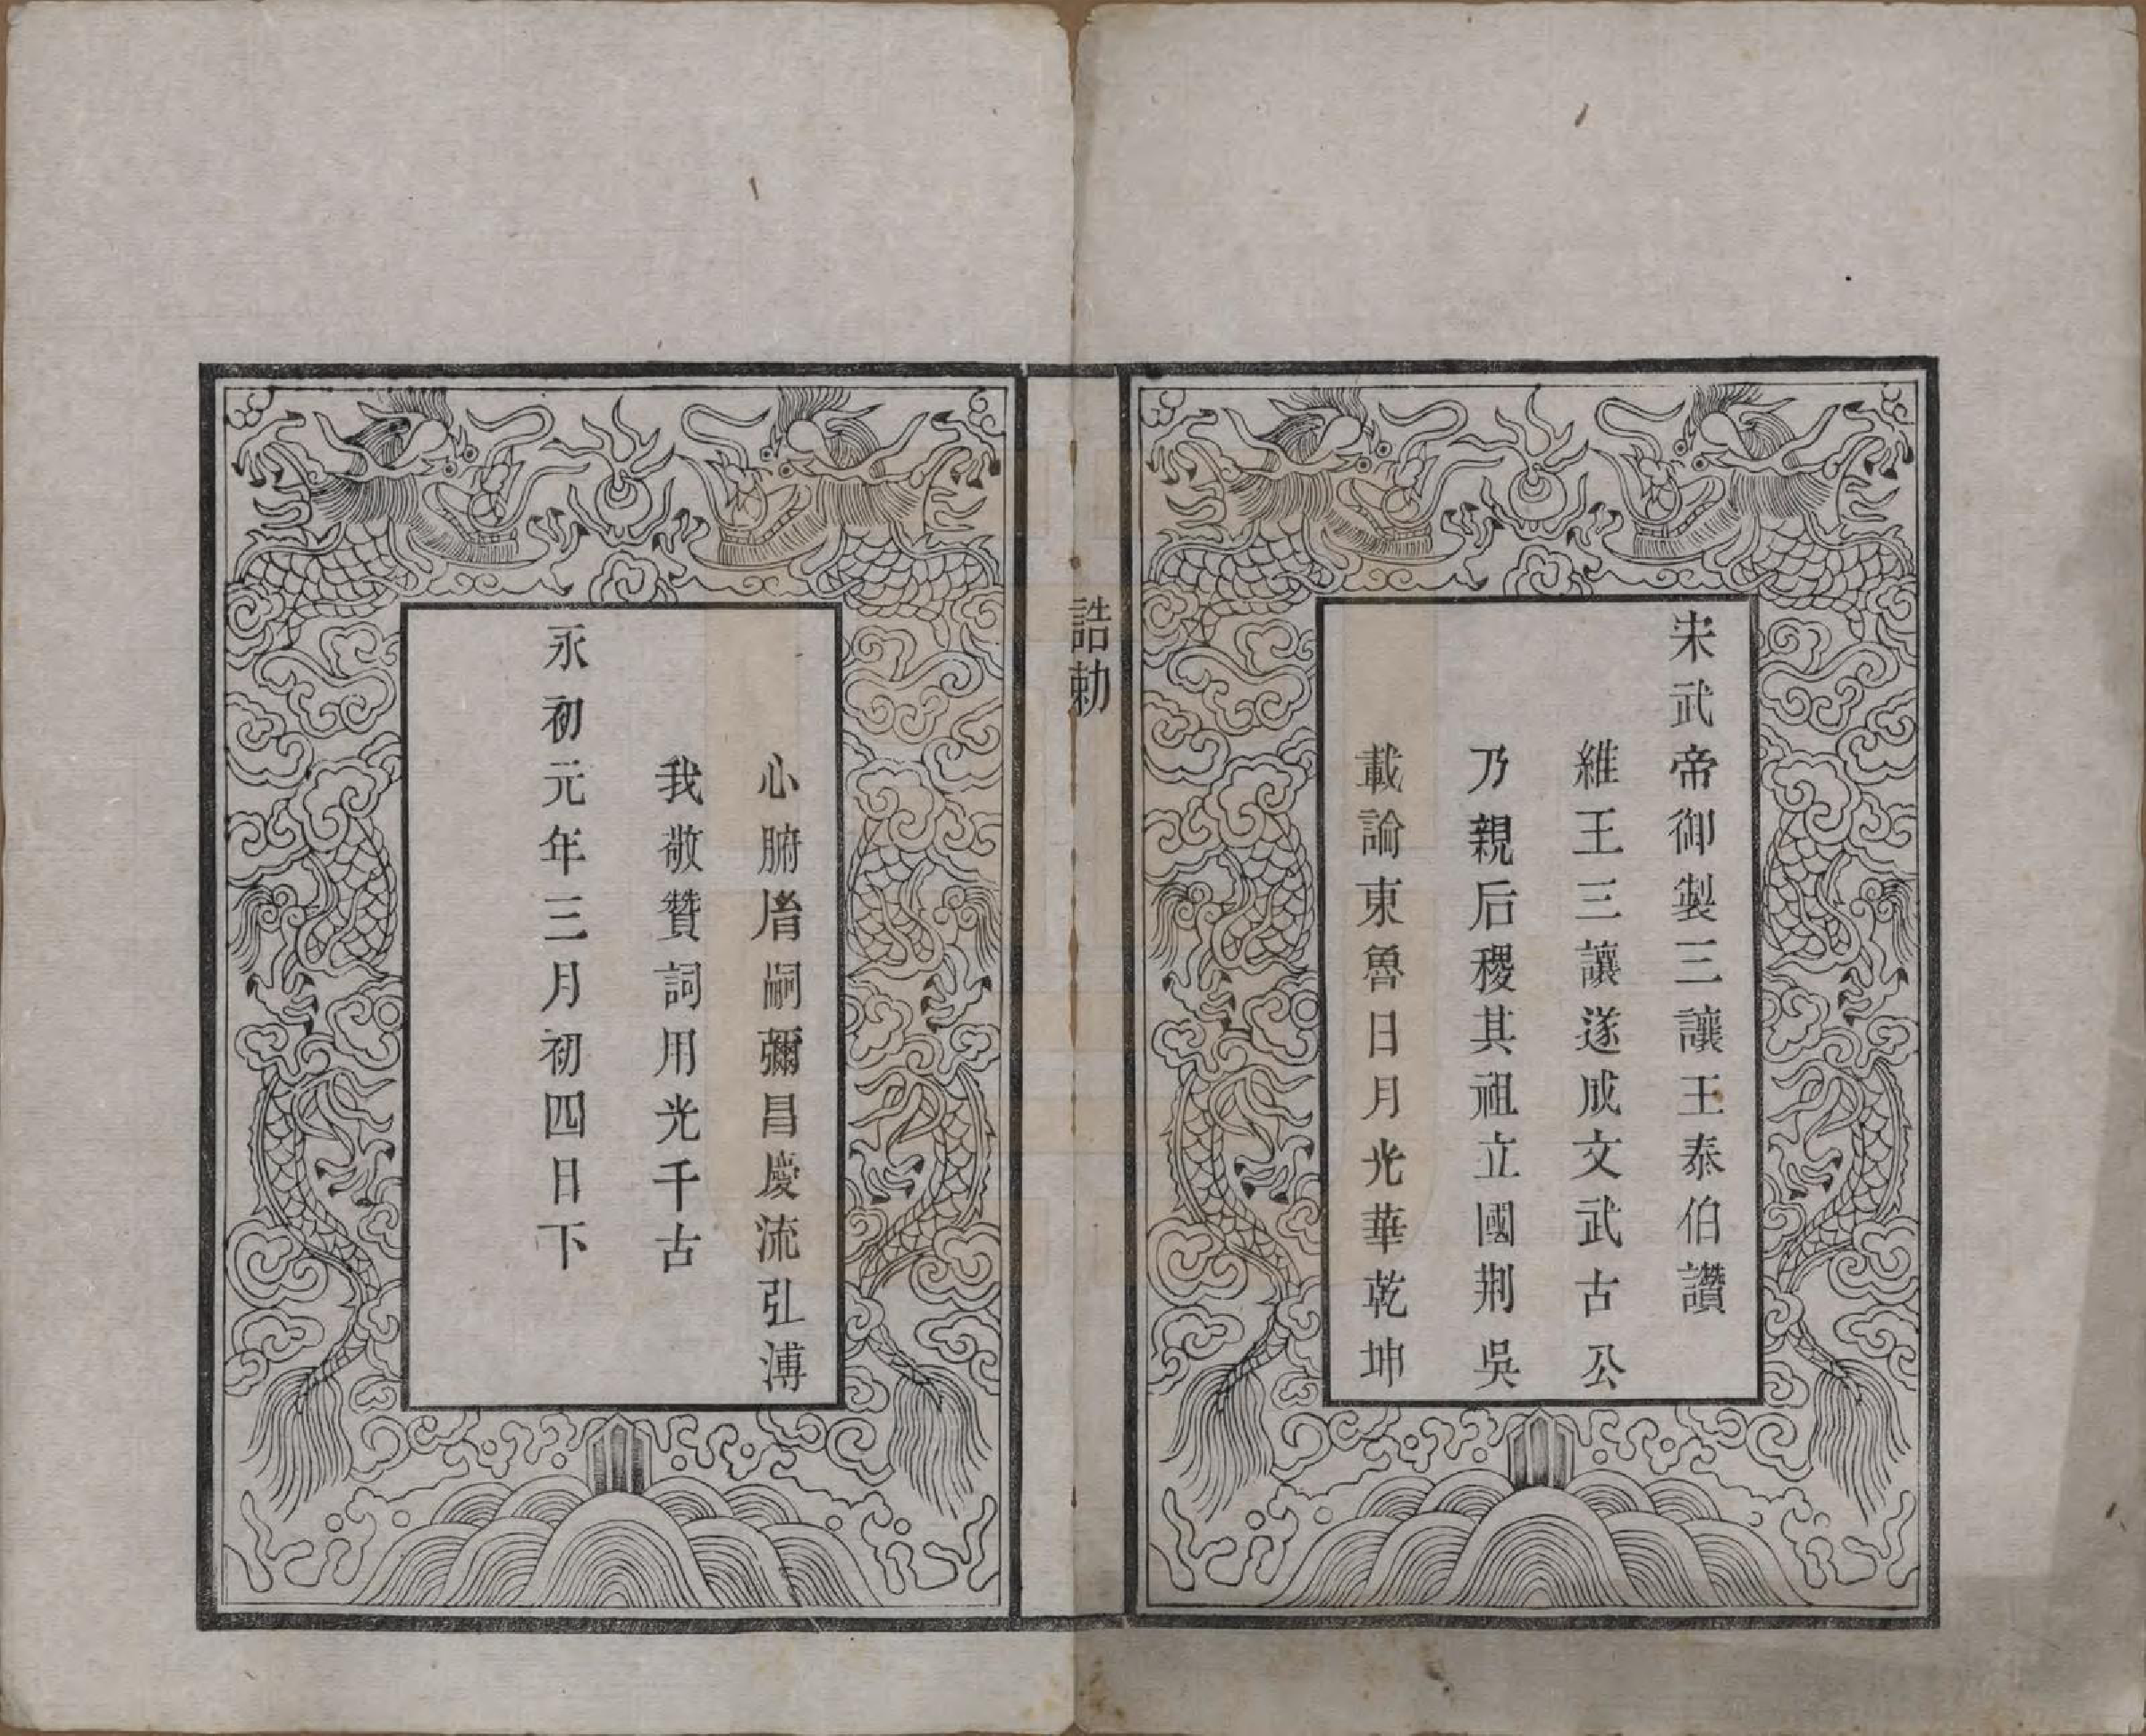 宋武帝御製三讓王泰伯讚
維王三讓遂成文武古公
乃親后稷其祖立國荆吳
載論東魯日月光華乾坤
誥勅
心腑㡯嗣彌昌慶流弘溥
我敬贊詞用光千古
永初元年三月初四日下